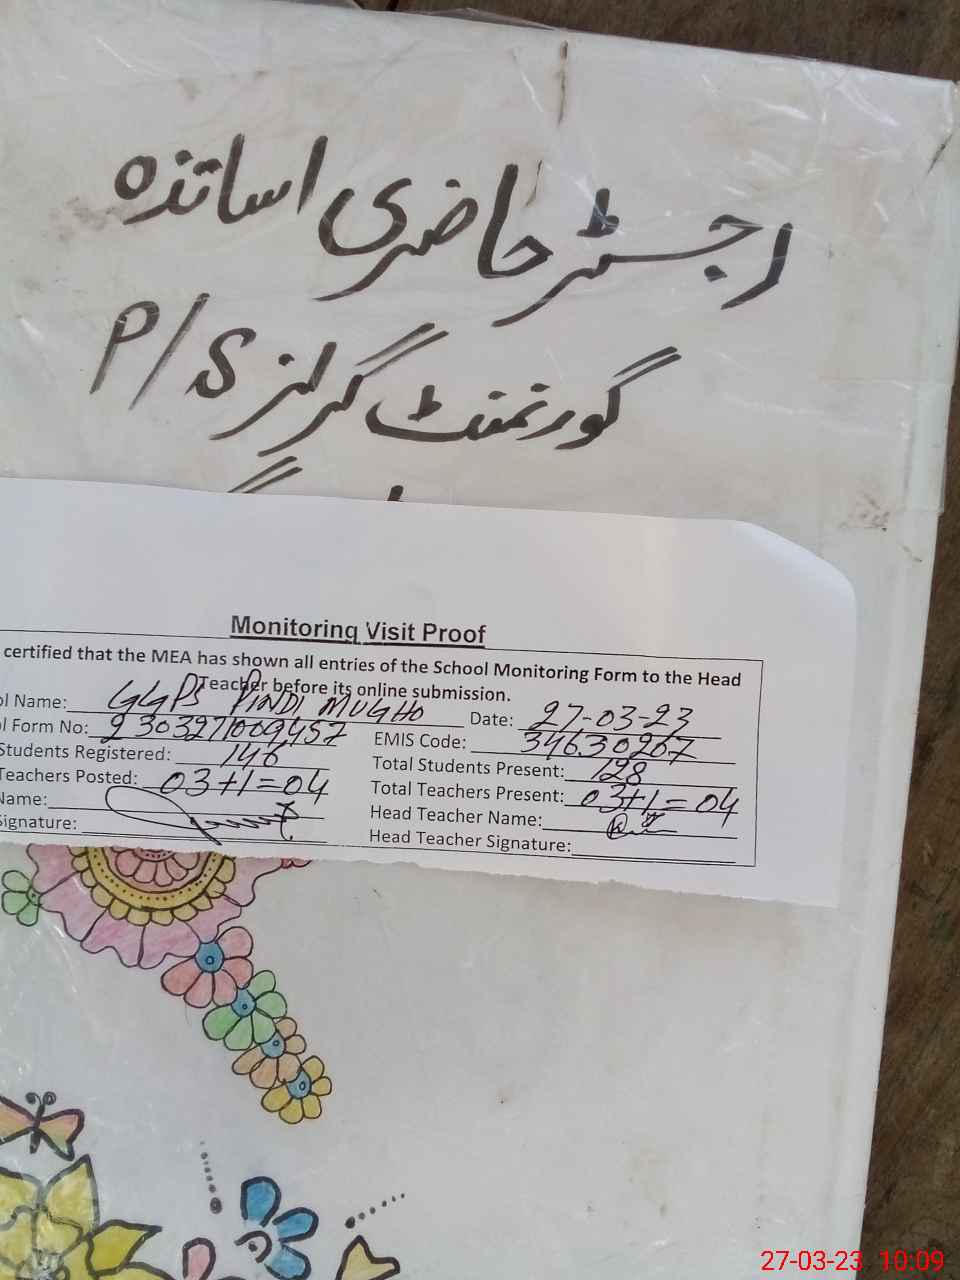 رجسٹر حاضری اساتذہ
گورنمنٹ گرلز P/S
Monitoring Visit Proof
certified that the MEA has shown all entries of the School Monitoring Form to the Head
Teacher before its online submission.
ol Name: GGPS PINDI MUGHO Date: 27-03-23
l Form No: 2303271009457 EMIS Code: 34630267
Students Registered: 146 Total Students Present: 128
Teachers Posted: 03+1=04 Total Teachers Present: 03+1=04
Name: Head Teacher Name:
Signature: Head Teacher Signature:
27-03-23 10:09